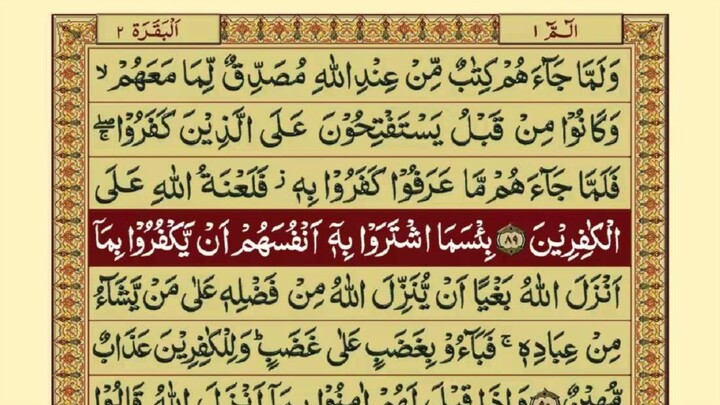 الٓمّٓ ١
اَلْبَقَرَة ٢
وَلَمَّا جَآءَهُمْ كِتٰبٌ مِّنْ عِنْدِ اللهِ مُصَدِّقٌ لِّمَا مَعَهُمْ ۙ
وَكَانُوْا مِنْ قَبْلُ يَسْتَفْتِحُوْنَ عَلَى الَّذِيْنَ كَفَرُوْا ۖۚ
فَلَمَّا جَآءَهُمْ مَّا عَرَفُوْا كَفَرُوْا بِهٖ ز فَلَعْنَةُ اللهِ عَلَى
الْكٰفِرِيْنَ ﴿٨٩﴾ بِئْسَمَا اشْتَرَوْا بِهٖٓ اَنْفُسَهُمْ اَنْ يَّكْفُرُوْا بِمَآ
اَنْزَلَ اللهُ بَغْيًا اَنْ يُّنَزِّلَ اللهُ مِنْ فَضْلِهٖ عَلٰى مَنْ يَّشَآءُ
مِنْ عِبَادِهٖ ۚ فَبَآءُوْ بِغَضَبٍ عَلٰى غَضَبٍ ؕ وَلِلْكٰفِرِيْنَ عَذَابٌ
مُّهِيْنٌ ﴿٩٠﴾ وَاِذَا قِيْلَ لَهُمْ اٰمِنُوْا بِمَآ اَنْزَلَ اللهُ قَالُوْا